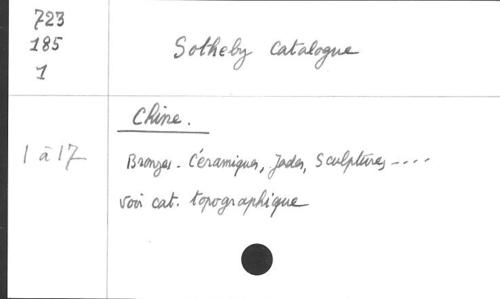 723
185
1
Sotheby Catalogue
Chine.
1 à 17
Bronzes. Céramiques, Jades, Sculptures ----
voir cat. topographique